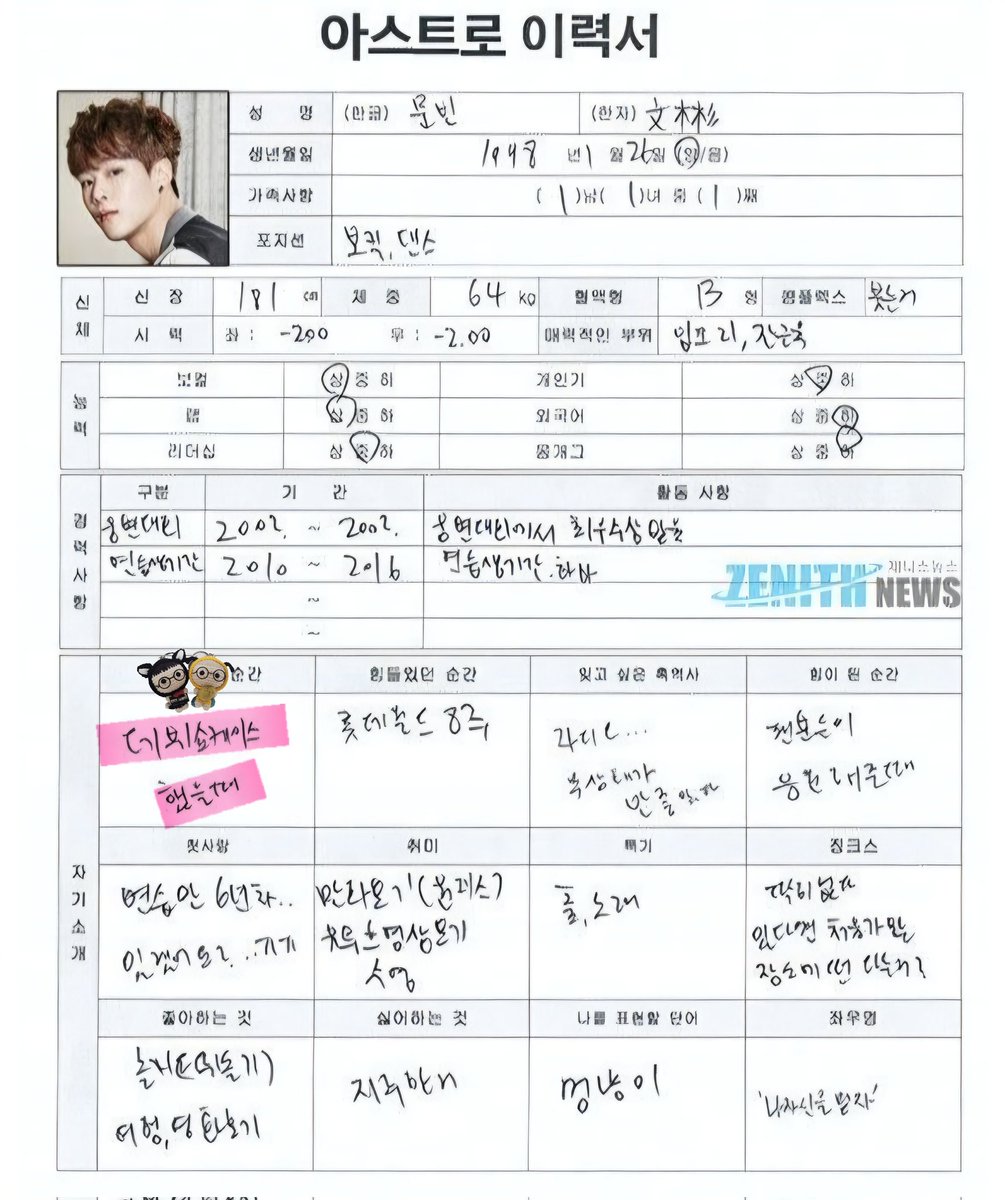 아스트로 이력서
성 명 (한글) 문빈 (한자) 文彬
생년월일 1998 년 1 월 26일 (양/음)
가족사항 ( 1 )남( 1 )녀 중 ( 1 )째
포지션 보컬, 댄스
신체
신 장 181 cm 체 중 64 KG 혈액형 B 형 콤플렉스 붓는거
시 력 좌 : -2.00 우 : -2.00 매력적인 부위 입꼬리, 잔근육
능력
보컬 상 중 하 개인기 상 중 하
랩 상 중 하 외국어 상 중 하
리더십 상 중 하 몸개그 상 중 하
경력사항
구분 기 간 활동 사항
웅변대회 2002. ~ 2002. 웅변대회에서 최우수상 받음
연습생기간 2010 ~ 2016 연습생기간
~
~
ZENITH NEWS 제니스뉴스
자기소개
순간 힘들었던 순간 잊고 싶은 흑역사 힘이 된 순간
데뷔쇼케이스
했을때
롯데월드 8주
라디오...
목상태가
팬분들이
응원해줄때
첫사랑 취미 특기 징크스
연습만 6년차..
있겠어요?..ㅠㅠ
만화보기(원피스)
유튜브영상보기
수영
춤, 노래
딱히없다
있다면 처음가보는
장소에선
좋아하는 것 싫어하는 것 나를 표현할 단어 좌우명
여행, 영화보기
멍냥이
'나자신을 믿자'